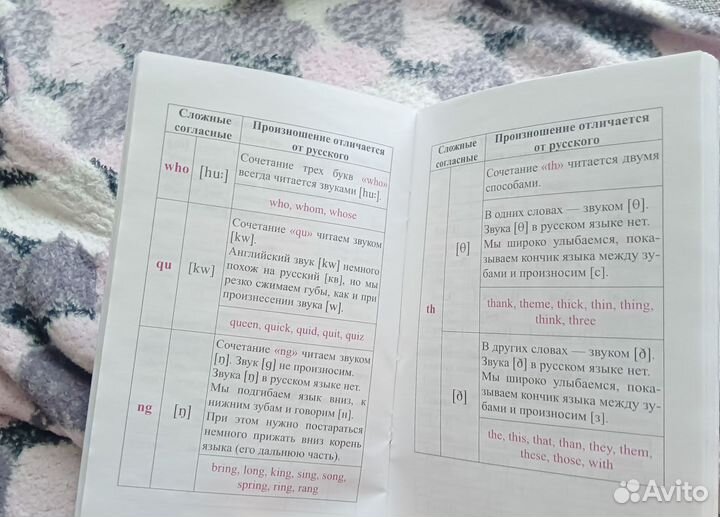 Сложные согласные
Произношение отличается от русского
who
[hu:]
Сочетание трех букв «who»
всегда читается звуками [hu:].
who, whom, whose
qu
[kw]
Сочетание «qu» читаем звуком
[kw].
Английский звук [kw] немного
похож на русский [кв], но мы
резко сжимаем губы, как и при
произнесении звука [w].
queen, quick, quid, quit, quiz
ng
[ŋ]
Сочетание «ng» читаем звуком
[ŋ]. Звук [g] не произносим.
Звука [ŋ] в русском языке нет.
Мы подгибаем язык вниз, к
нижним зубам и говорим [н].
При этом нужно постараться
немного прижать вниз корень
языка (его дальнюю часть).
bring, long, king, sing, song,
spring, ring, rang
Сложные согласные
Произношение отличается
от русского
th
Сочетание «th» читается двумя
способами.
[θ]
В одних словах — звуком [θ].
Звука [θ] в русском языке нет.
Мы широко улыбаемся, пока-
зываем кончик языка между зу-
бами и произносим [с].
thank, theme, thick, thin, thing,
think, three
[ð]
В других словах — звуком [ð].
Звука [ð] в русском языке нет.
Мы широко улыбаемся, пока-
зываем кончик языка между зу-
бами и произносим [з].
the, this, that, than, they, them,
these, those, with
Avito